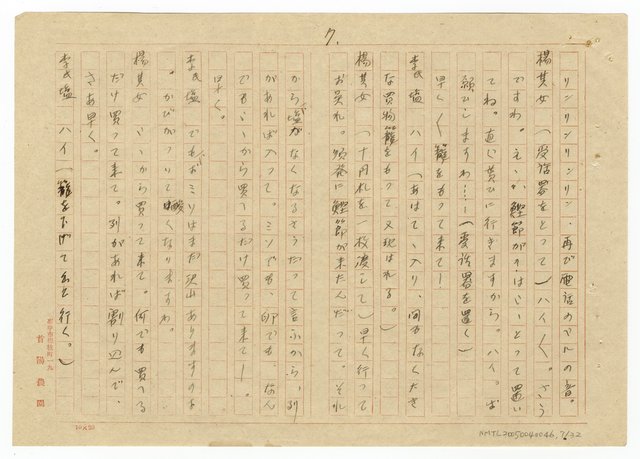 7.
リンリンリンリン、再び電話のベルの音。
楊其女 （受話器をとって）ハイ〱。さう
ですわ。えゝ、鰹節が？はい、とって置い
てね。直ぐ貰ひに行きますから。ハイ。お
願ひしますわ……（受話器を置く）
早く〱籠をもって来て！
李氏塩 ハイ（あはてゝ入り、間もなく大き
な買物籠をもって又現はれる。）
楊其女 （十円札を一枚渡して）早く行って
お呉れ。頌発に鰹節が来たんだって。それ
から塩がなくなるさうだって言ふから、列
があれば入って。ミソでも、卵でも、なん
でもいゝから買へるだけ買って来て！。
早く。
李氏塩 でもおミソはまだ沢山ありますのよ
。かびがついて酸くなりますわ。
楊其女 いゝから買って来て。何でも買へる
だけ買って来て。列があれば割り込んで、
さあ早く。
李氏塩 ハイ（籠を下げて出て行く。）
首陽農園
10×20
NMTL20050040046, 7/32